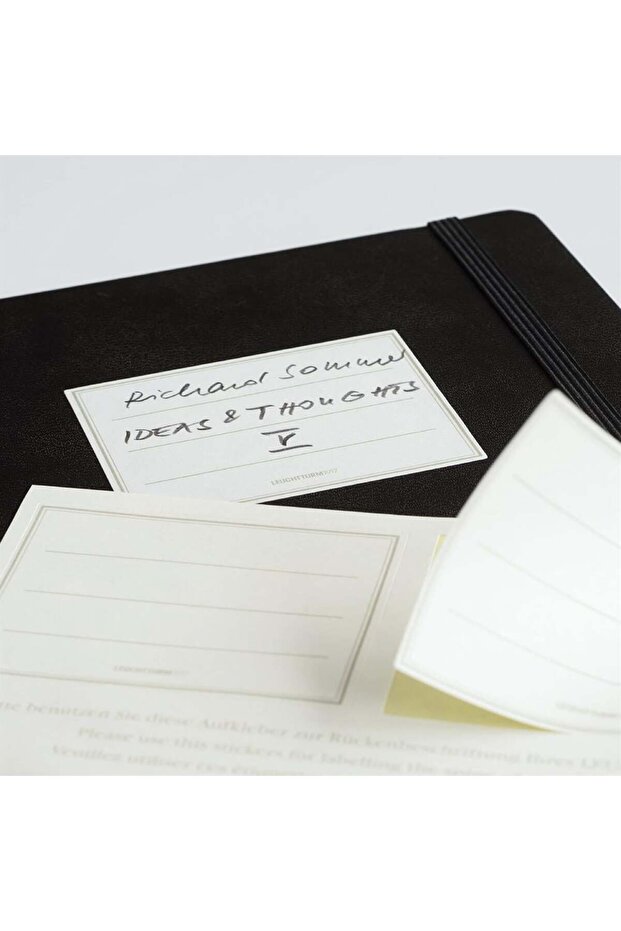 Richard Sommer
IDEAS & THOUGHTS
V
LEUCHTTURM1917
LEUCHTTURM1917
benutzen Sie diese Aufkleber zur Rückenbeschriftung Ihres
Please use this stickers for labelling the
Veuillez utiliser ces